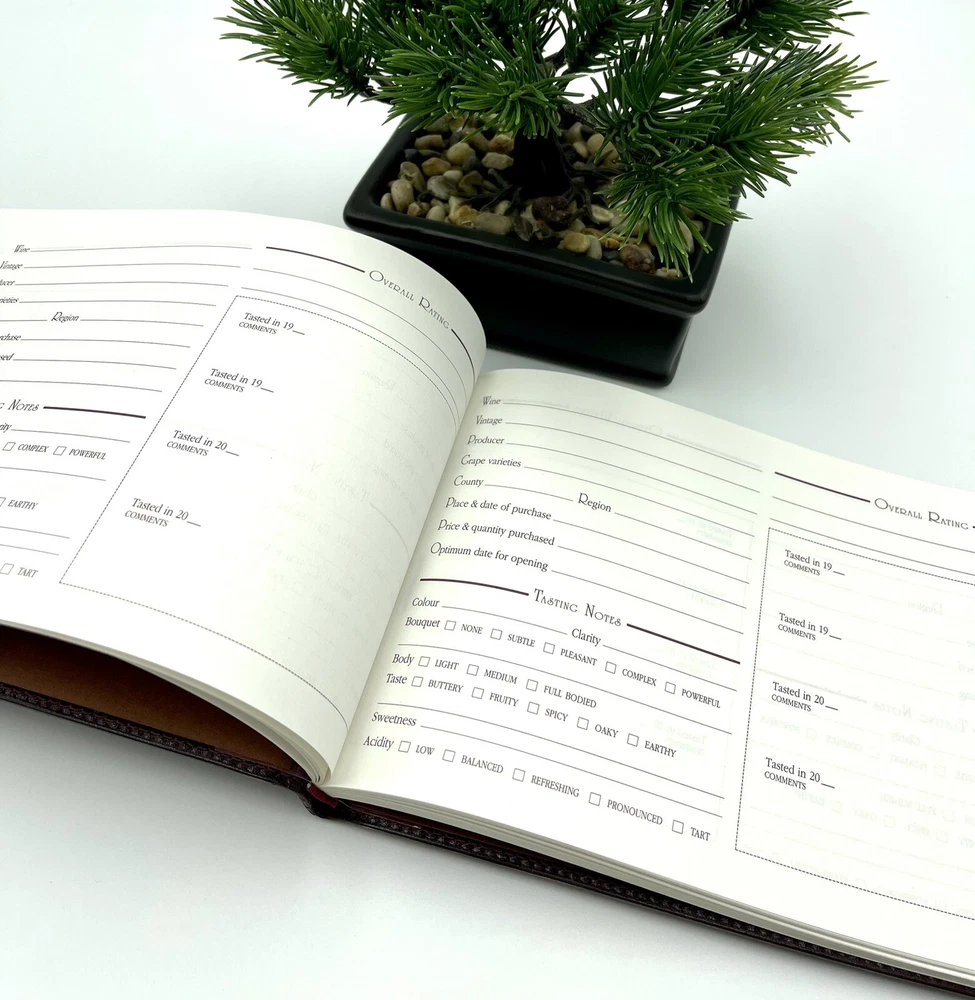 Wine
Vintage
ucer
rieties
Region
rchase
sed
G NOTES
rity
COMPLEX POWERFUL
EARTHY
TART
OVERALL RATING
Tasted in 19__
COMMENTS
Tasted in 19__
COMMENTS
Tasted in 20__
COMMENTS
Tasted in 20__
COMMENTS
Wine
Vintage
Producer
Grape varieties
County Region
Place & date of purchase
Price & quantity purchased
Optimum date for opening
TASTING NOTES
Colour Clarity
Bouquet NONE SUBTLE PLEASANT COMPLEX POWERFUL
Body LIGHT MEDIUM FULL BODIED
Taste BUTTERY FRUITY SPICY OAKY EARTHY
Sweetness
Acidity LOW BALANCED REFRESHING PRONOUNCED TART
OVERALL RATING
Tasted in 19__
COMMENTS
Tasted in 19__
COMMENTS
Tasted in 20__
COMMENTS
Tasted in 20__
COMMENTS